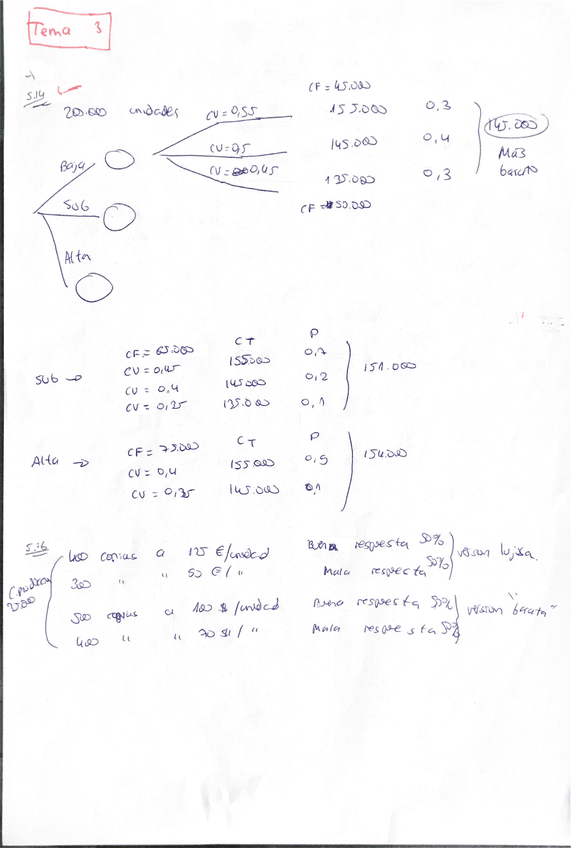 Tema 3
5.14
200.000 unidades
CF = 45.000
CV = 0,55 155.000 0,3
CV = 0,5 145.000 0,4
CV = 0,45 135.000 0,3
145.000
Más
barato
CF = 50.000
Baja
SUB
Alta
CT P
SUB → CF = 65.000
CV = 0,45 155.000 0,7
CV = 0,4 145.000 0,2
CV = 0,25 135.000 0,1
151.000
CT P
Alta → CF = 75.000
CV = 0,4 155.000 0,9
CV = 0,35 145.000 0,1
154.000
5.16
400 copias a 125 €/unidad Buena respuesta 50%
300 " " 50 €/ " Mala respuesta 50%
version lujosa.
500 copias a 100 $/unidad Buena respuesta 50%
400 " " 70 $/ " Mala respuesta 50%
version "barata"